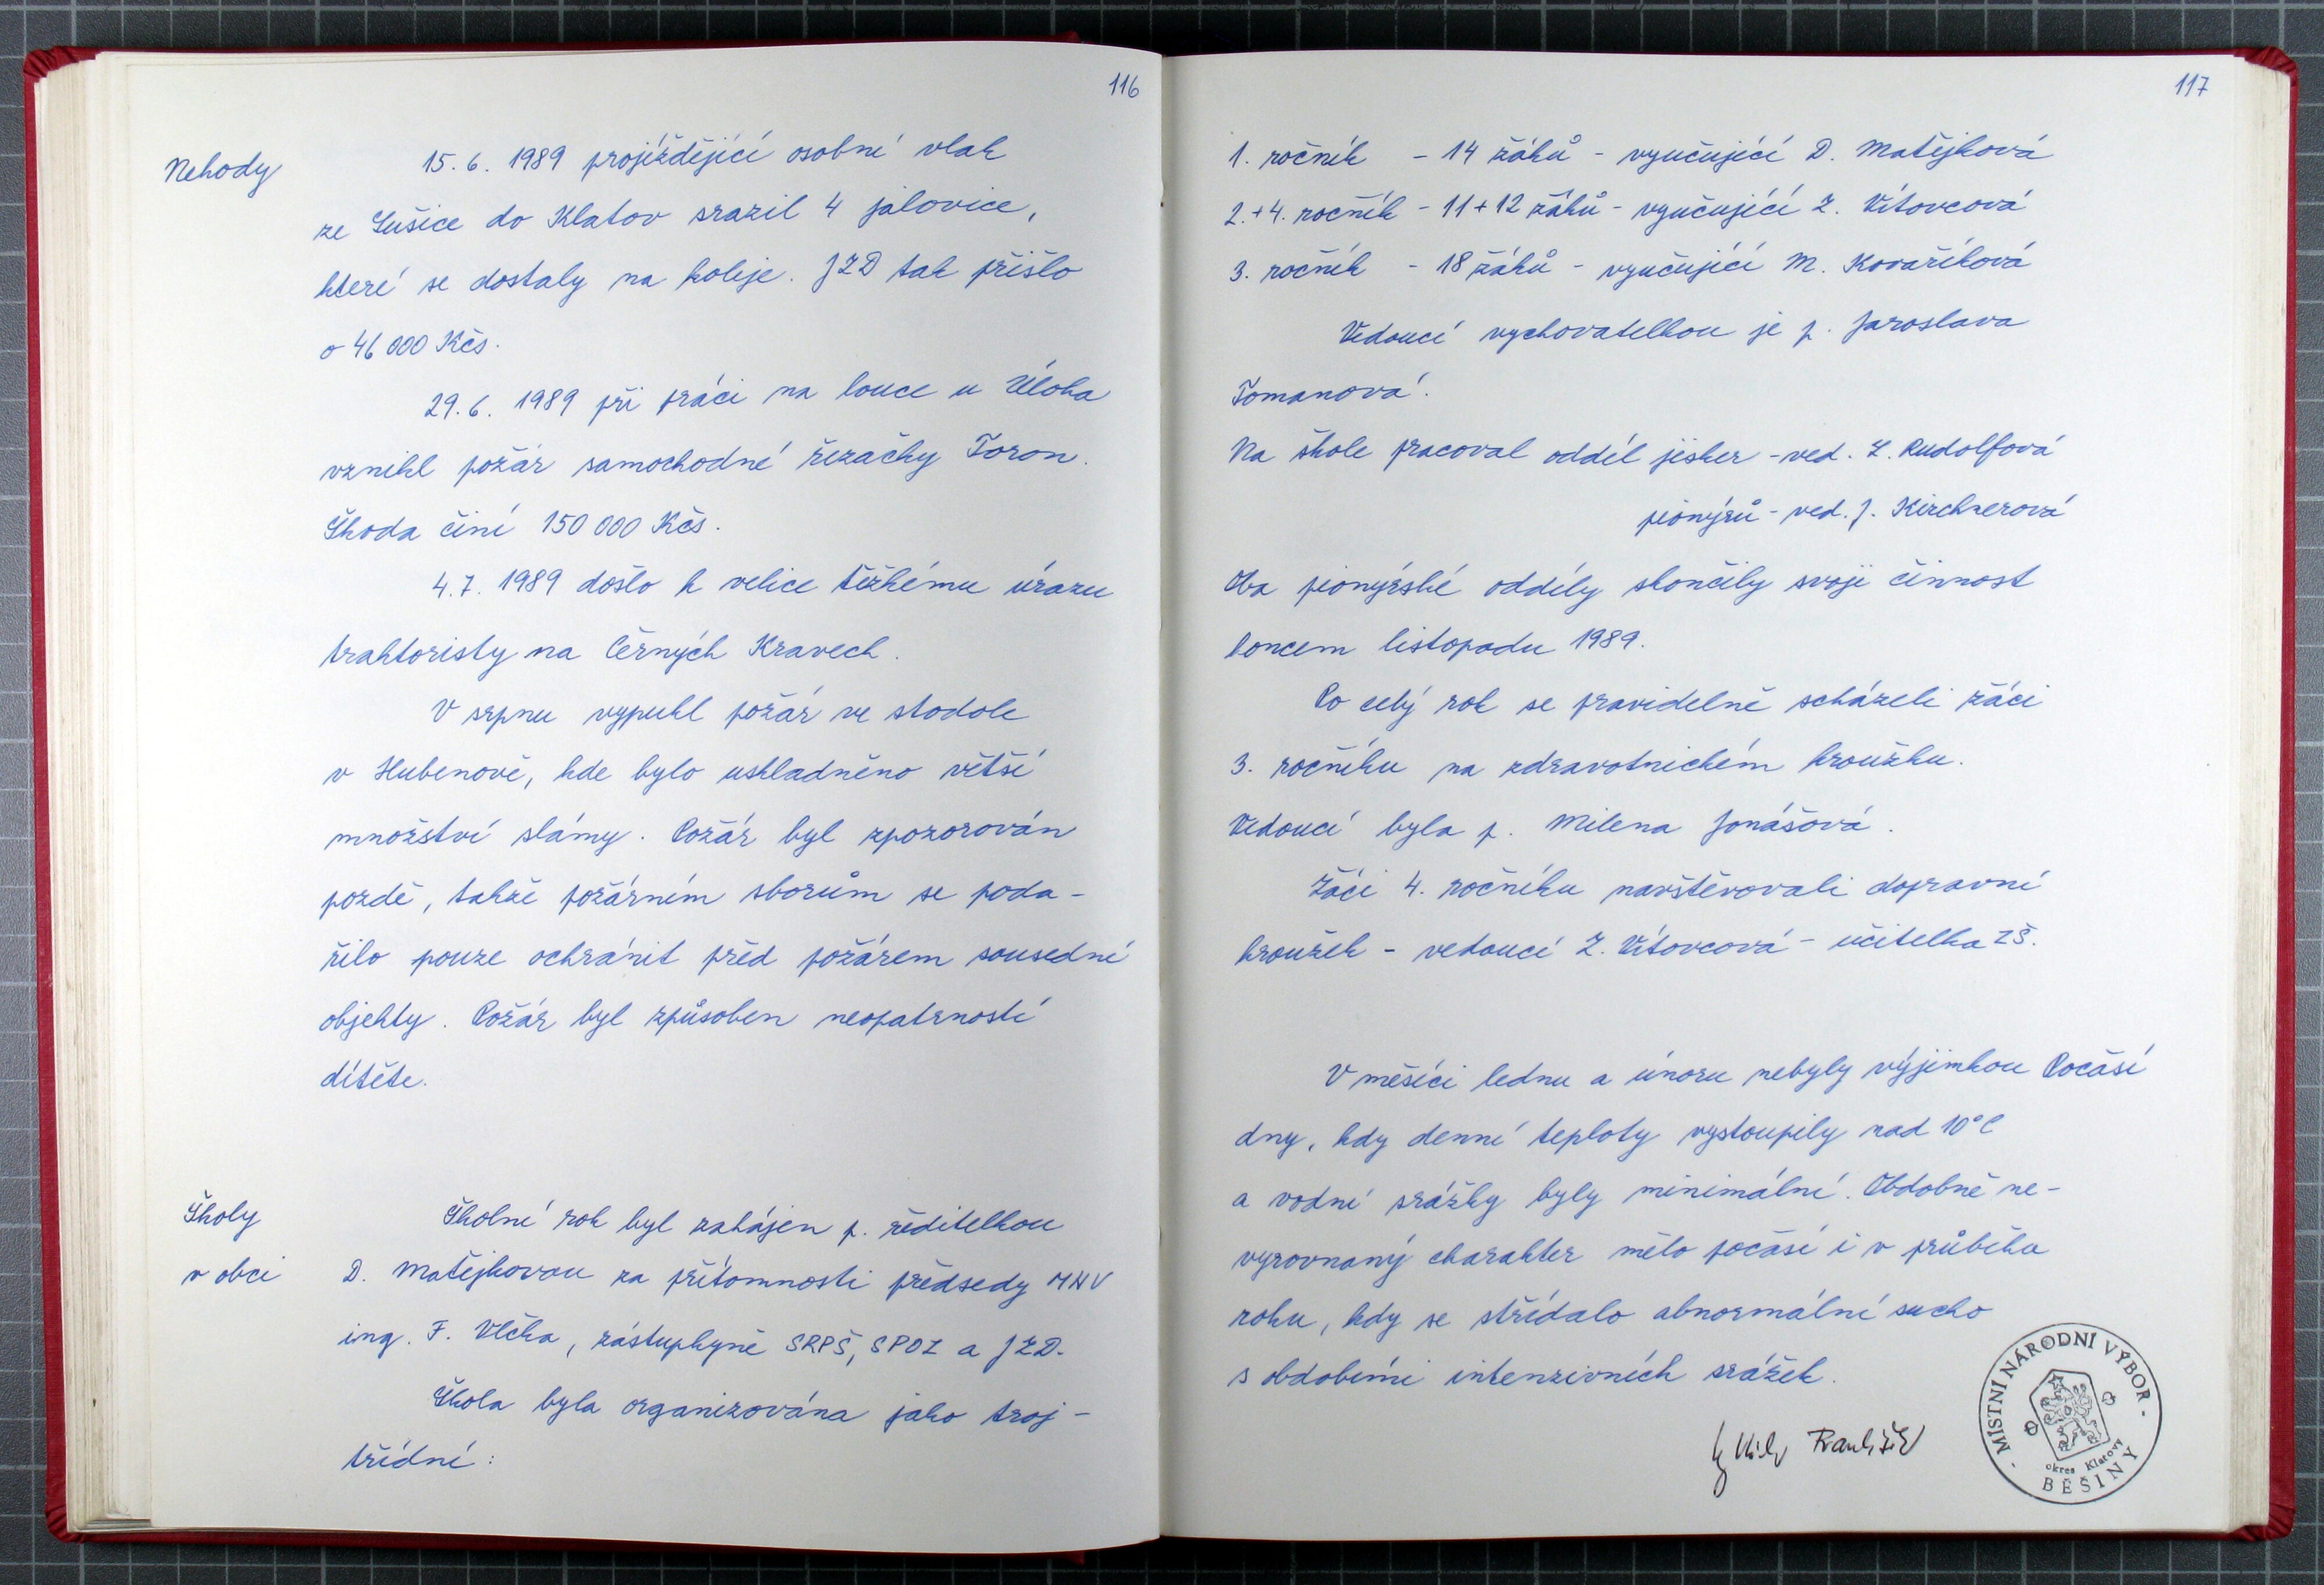 116
Nehody
15.6. 1989 projíždějící osobní vlak
ze Sušice do Klatov srazil 4 jalovice,
které se dostaly na koleje. JZD tak přišlo
o 46 000 Kčs.
29.6. 1989 při práci na louce u Úloha
vznikl požár samochodné řezačky Toron.
Škoda činí 150 000 Kčs.
4.7. 1989 došlo k velice těžkému úrazu
traktoristy na Černých Kravech.
V srpnu vypukl požár ve stodole
v Hubenově, kde bylo uskladněno větší
množství slámy. Požár byl zpozorován
pozdě, takže požárním sborům se poda-
řilo pouze ochránit před požárem sousední
objekty. Požár byl způsoben neopatrností
dítěte.
Školy
v obci
Školní rok byl zahájen p. ředitelkou
D. Matějkovou za přítomnosti předsedy MNV
ing. F. Vlčka, zástupkyně SRPŠ, SPOZ a JZD.
Škola byla organizována jako troj-
třídní:
117
1. ročník - 14 žáků - vyučující D. Matějková
2.+4. ročník - 11+12 žáků - vyučující Z. Vítovcová
3. ročník - 18 žáků - vyučující M. Kovaříková
Vedoucí vychovatelkou je p. Jaroslava
Tomanová.
Na škole pracoval oddíl jisker - ved. Z. Rudolfová
pionýrů - ved. J. Kirchnerová
Oba pionýrské oddíly skončily svoji činnost
koncem listopadu 1989.
Po celý rok se pravidelně scházeli žáci
3. ročníku na zdravotnickém kroužku.
Vedoucí byla p. Milena Jonášová.
Žáci 4. ročníku navštěvovali dopravní
kroužek - vedoucí Z. Vítovcová - učitelka ZŠ.
V měsíci lednu a únoru nebyly výjimkou
Počasí
dny, kdy denní teploty vystoupily nad 10°C
a vodní srážky byly minimální. Obdobně ne-
vyrovnaný charakter mělo počasí i v průběhu
roku, kdy se střídalo abnormální sucho
s obdobími intenzivních srážek.
František
- MÍSTNÍ NÁRODNÍ VÝBOR -
okres Klatovy
BĚŠINY